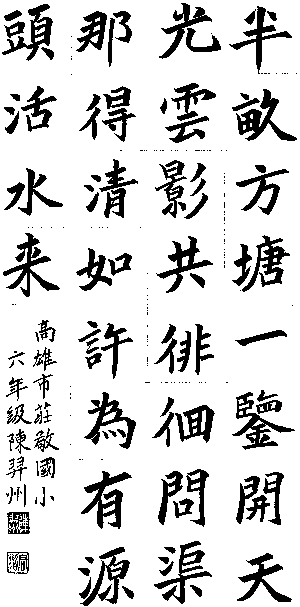 半畝方塘一鑒開天
光雲影共徘徊問渠
那得清如許為有源
頭活水来
高雄市莊敬國小
六年級陳羿州